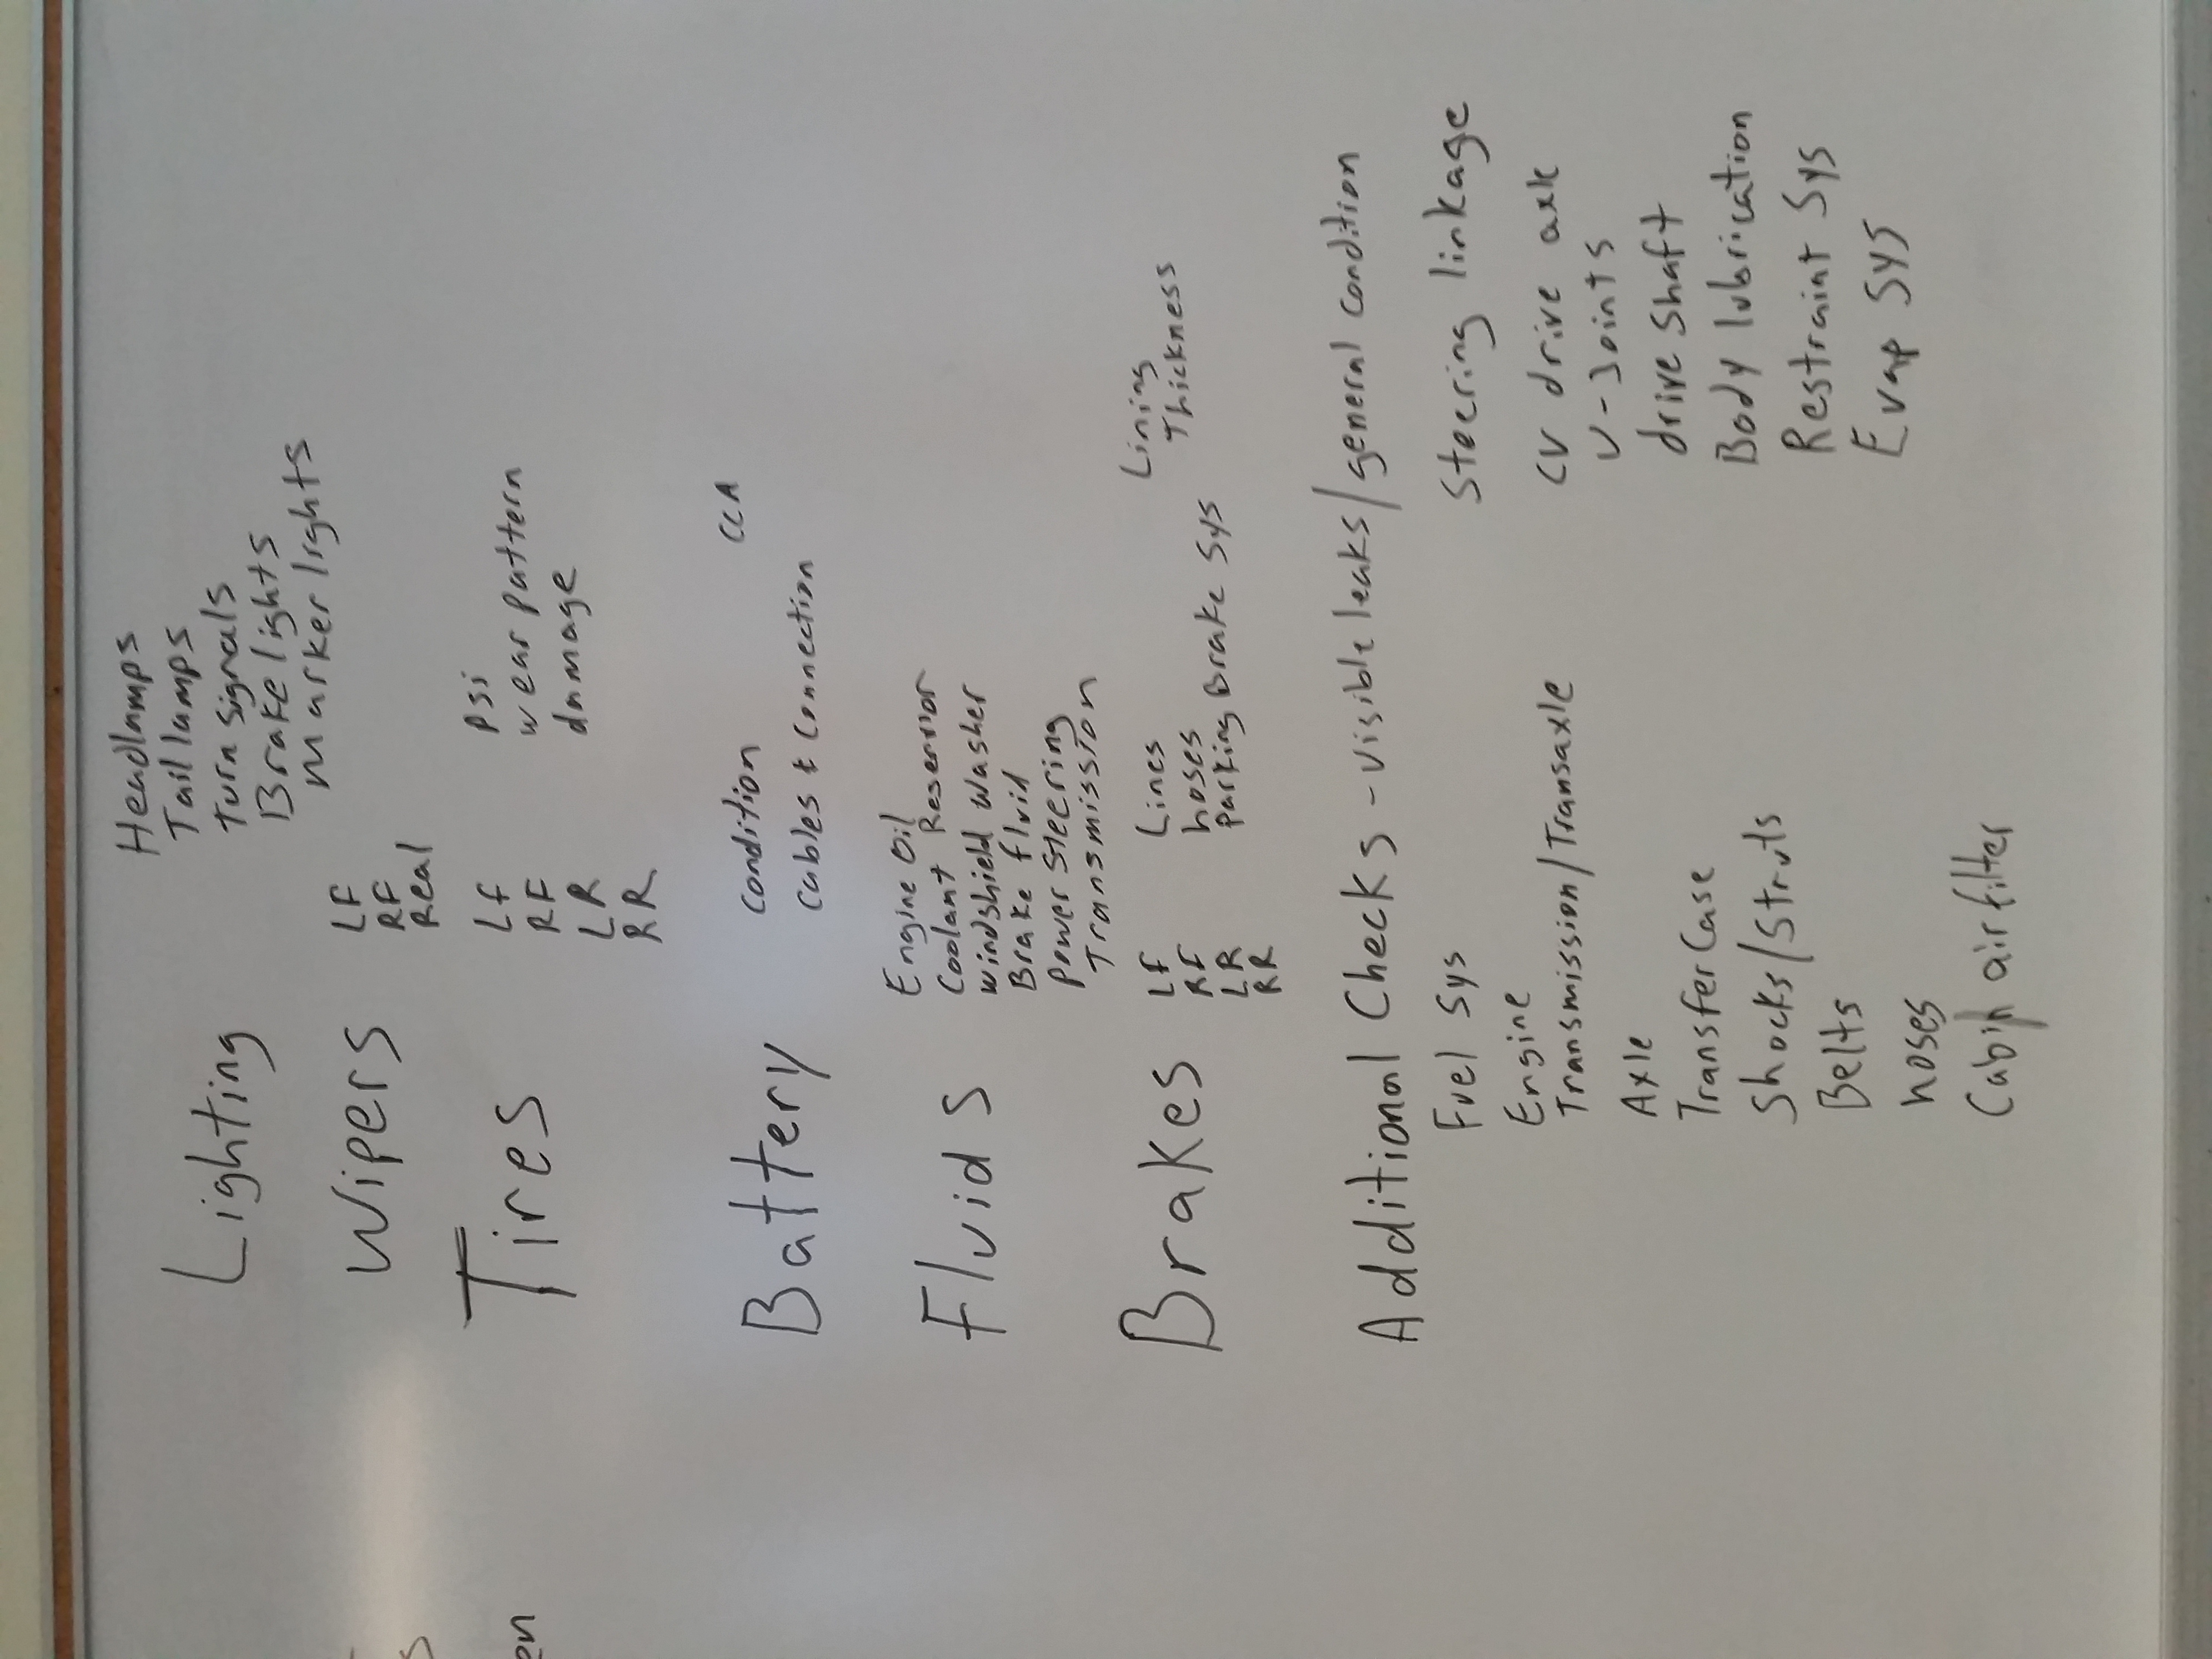 Headlamps
Tail lamps
Lighting
turn signals
Brake lights
Marker lights
Wipers
LF
RF
Real
Tires
LF
RF
LR
RR
psi
wear pattern
damage
Battery
condition
CCA
Cables & Connection
Fluids
Engine Oil
Coolant Reservior
Windshield Washer
Brake fluid
Power Steering
Transmission
Brakes
LF
RF
LR
RR
Lines
hoses
Parking Brake Sys
Lining
Thickness
Additional Checks - visible leaks/general condition
Fuel Sys
Engine
Transmission/Transaxle
Axle
Transfer Case
Shocks/Struts
Belts
hoses
Cabin air filter
Steering linkage
CV drive axle
U-Joints
drive shaft
Body lubrication
Restraint Sys
Evap Sys
s
en